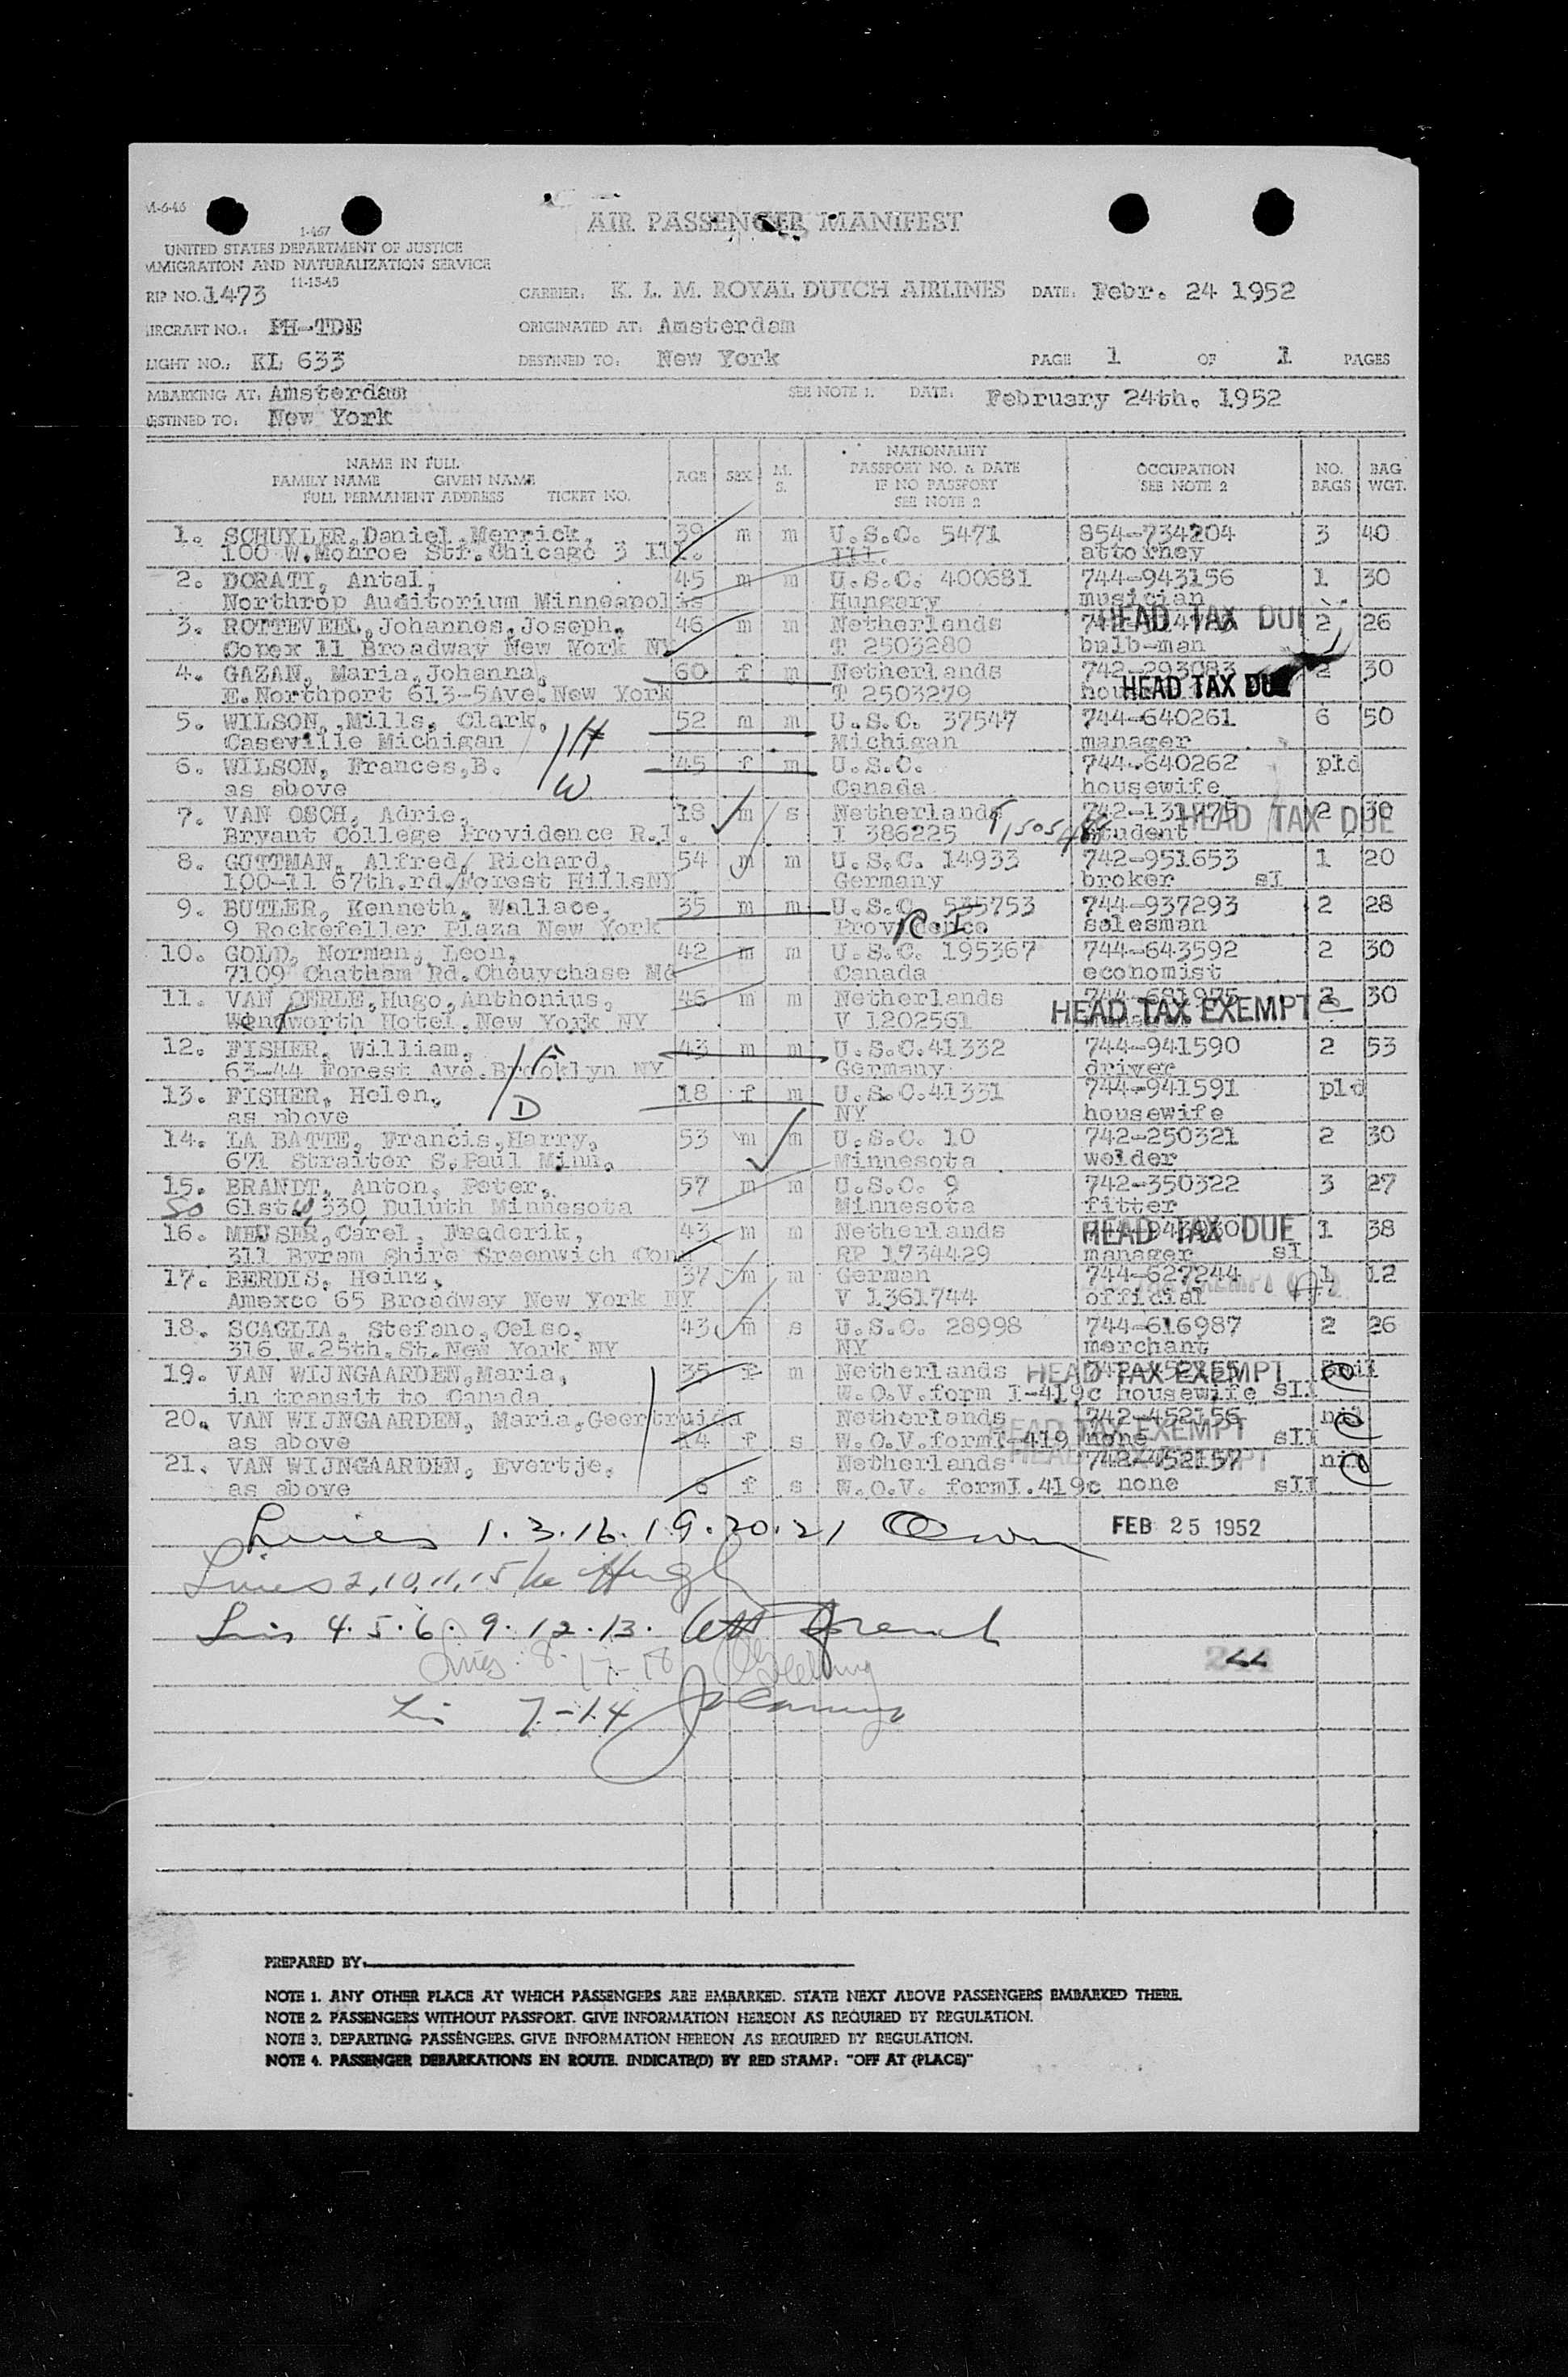 M-6-46
AIR PASSENGER MANIFEST
1-467
UNITED STATES DEPARTMENT OF JUSTICE
MMIGRATION AND NATURALIZATION SERVICE
11-15-45
RIP NO. 1473 CARRIER: K. L. M. ROYAL DUTCH AIRLINES DATE: Febr. 24 1952
IRCRAFT NO.: PH-TDE ORIGINATED AT: Amsterdam
LIGHT NO.: KL 633 DESTINED TO: New York PAGE 1 OF 1 PAGES
MBARKING AT: Amsterdam SEE NOTE 1. DATE: February 24th. 1952
ESTINED TO: New York
NAME IN FULL
FAMILY NAME GIVEN NAME
FULL PERMANENT ADDRESS TICKET NO. AGE SEX M. S. NATIONALITY PASSPORT NO. & DATE IF NO PASSPORT SEE NOTE 2 OCCUPATION SEE NOTE 2 NO. BAGS BAG WGT.
1. SCHUYLER, Daniel, Merrick, 39 m m U.S.C. 5471 854-734204 3 40
100 W.Monroe Str.Chicago 3 Ill. Ill. attorney
2. DORATI, Antal, 45 m m U.S.C. 400681 744-943156 1 30
Northrop Auditorium Minneapolis Hungary musician
3. ROTTEVEEL, Johannes, Joseph, 46 m m Netherlands HEAD TAX DUE 2 26
Corex 11 Broadway New York NY T 2503280 bulb-man
4. GAZAN, Maria, Johanna, 60 f m Netherlands 742-293083 2 30
E.Northport 613-5Ave.New York T 2503279 HEAD TAX DUE
5. WILSON, Mills, Clark, 52 m m U.S.C. 37547 744-640261 6 50
Caseville Michigan H Michigan manager
6. WILSON, Frances,B. 45 f m U.S.C. 744-640262 pld
as above W Canada housewife
7. VAN OSCH, Adrie, 18 m s Netherlands 742-131775 2 30
Bryant College Providence R.I. I 386225 student HEAD TAX DUE
8. GOTTMAN, Alfred, Richard, 54 m m U.S.C. 14933 742-951653 1 20
100-11 67th.rd.Forest HillsNY Germany broker sI
9. BUTLER, Kenneth, Wallace, 35 m m U.S.C. 535753 744-937293 2 28
9 Rockefeller Plaza New York Providence RI salesman
10. GOLD, Norman, Leon, 42 m m U.S.C. 195367 744-643592 2 30
7109 Chatham Rd.Chouychase Md Canada economist
11. VAN OERLE, Hugo, Anthonius, 46 m m Netherlands 744-681975 2 30
Wengworth Hotel.New York NY V 1202561 HEAD TAX EXEMPT
12. FISHER, William, 43 m m U.S.C.41332 744-941590 2 53
63-44 Forest Ave.Brooklyn NY F Germany driver
13. FISHER, Helen, 18 f m U.S.C.41331 744-941591 pld
as above D NY housewife
14. LA BATTE, Francis, Harry, 53 m m U.S.C. 10 742-250321 2 30
671 Straitor S.Paul Minn. Minnesota welder
15. BRANDT, Anton, Peter, 57 m m U.S.C. 9 742-350322 3 27
So 61st W,330 Duluth Minnesota Minnesota fitter
16. MEUSER, Carel, Frederik, 43 m m Netherlands HEAD TAX DUE 1 38
311 Byram Shire Greenwich Conn RP 1734429 manager sI
17. BERDIS, Heinz, 37 m m German 744-627244 1 12
Amexco 65 Broadway New York NY V 1361744 official
18. SCAGLIA, Stefano, Celso, 43 m s U.S.C. 28998 744-616987 2 26
316 W.25th.St.New York NY NY merchant
19. VAN WIJNGAARDEN, Maria, 35 f m Netherlands HEAD TAX EXEMPT
in transit to Canada W.O.V.form I-419c housewife sII
20. VAN WIJNGAARDEN, Maria, Geertruida Netherlands 742-452156 nil
as above 14 f s W.O.V.formI-419 none sII HEAD TAX EXEMPT
21. VAN WIJNGAARDEN, Evertje, Netherlands 742-452157 nil
as above 6 f s W.O.V. formI.419c none sII
Lines 1.3.16.19.20.21 FEB 25 1952
Lines 2,10,11,15
Lines 4.5.6.9.12.13.
Lines 8. 17-18
Li 7-14
PREPARED BY:
NOTE 1. ANY OTHER PLACE AT WHICH PASSENGERS ARE EMBARKED. STATE NEXT ABOVE PASSENGERS EMBARKED THERE.
NOTE 2. PASSENGERS WITHOUT PASSPORT. GIVE INFORMATION HEREON AS REQUIRED BY REGULATION.
NOTE 3. DEPARTING PASSENGERS. GIVE INFORMATION HEREON AS REQUIRED BY REGULATION.
NOTE 4. PASSENGER DEBARKATIONS EN ROUTE. INDICATE(D) BY RED STAMP: "OFF AT (PLACE)"